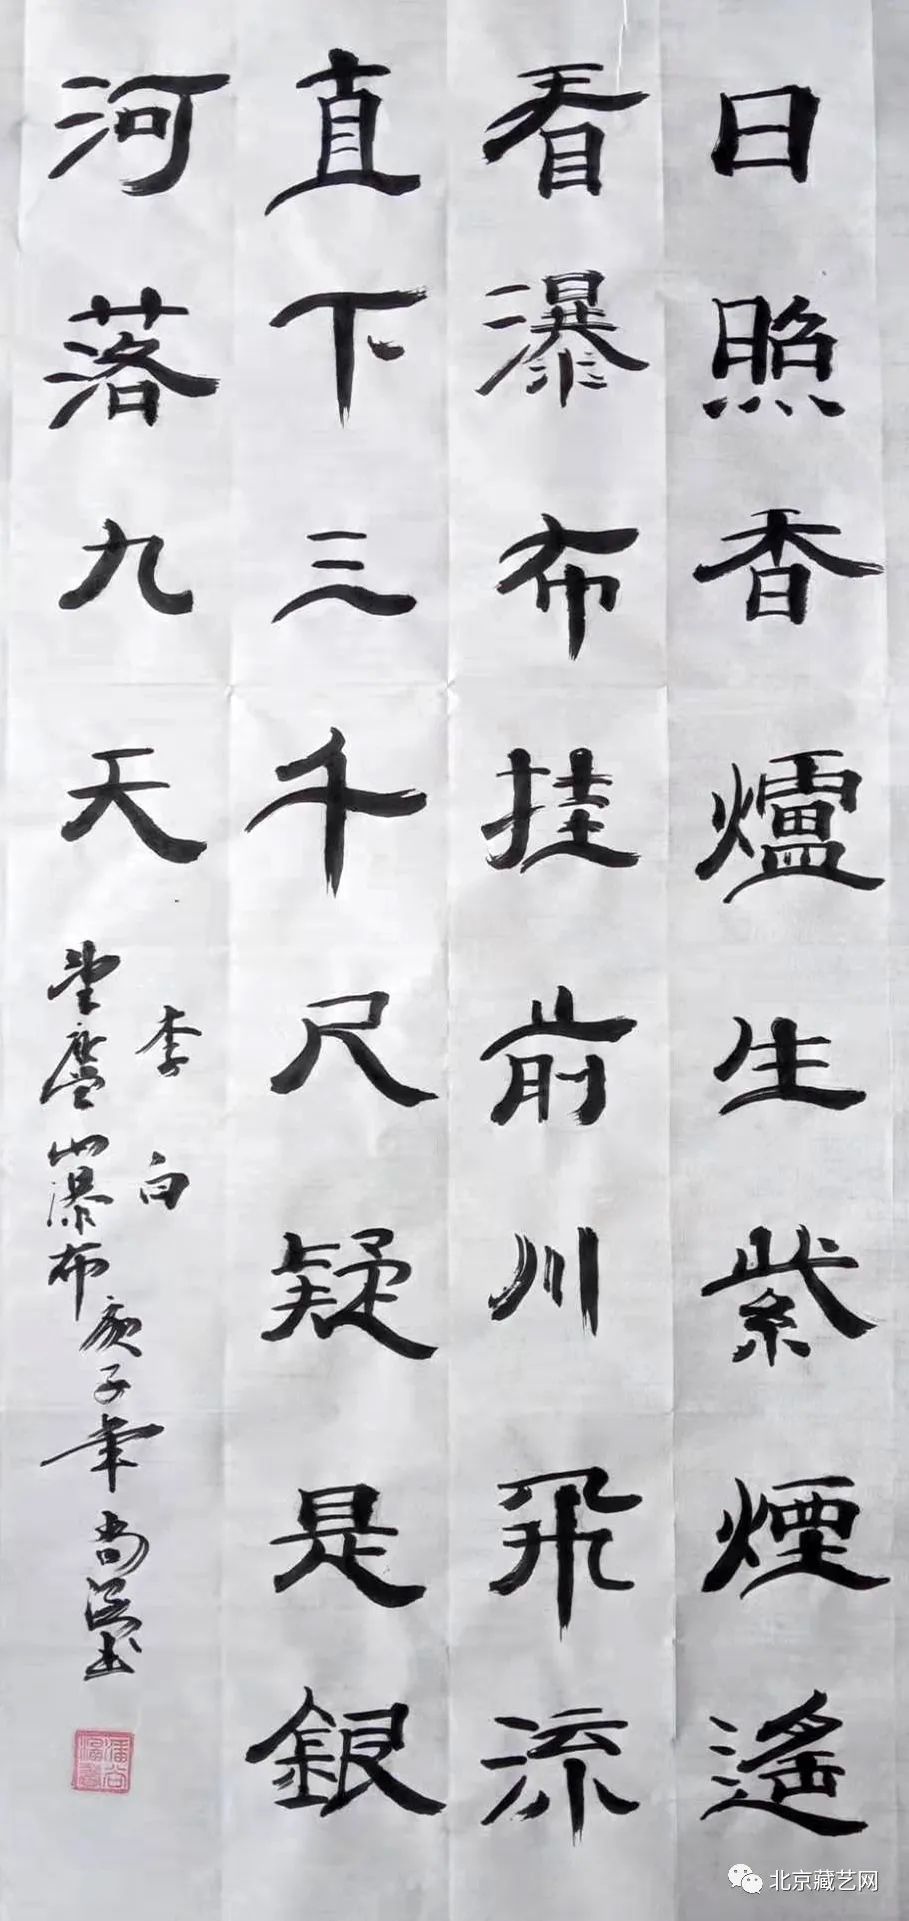 日照香爐生紫煙遙
看瀑布挂前川飛流
直下三千尺疑是銀
河落九天
李白
望廬山瀑布庚子年尚溪书
北京藏艺网